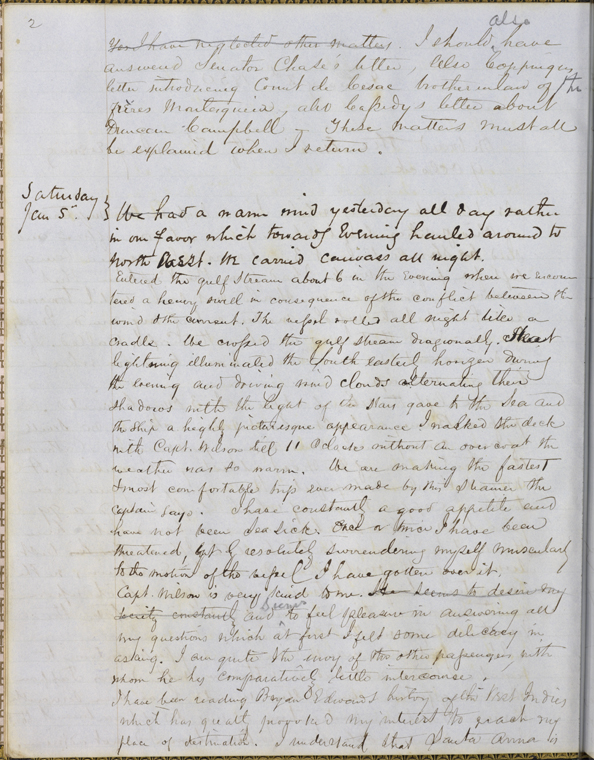 2
also
You I have neglected other matters. I should have
answered Senator Chase's letter, also Coppingers
letter introducing Count de Cesac brotherinlaw of the
Frères Montesquieu, also Cassidy's letter about
Duncan Campbell — These matters must all
be explained when I return.
Saturday
Jan 5
We had a warm wind yesterday all day rather
in our favor which towards Evening hauled around to
North East. We carried canvass all night.
Entered the gulf stream about 6 in the Evening when we encoun
tered a heavy swell in consequence of the conflict between the
wind & the current. The vessel rolled all night like a
cradle. We crossed the gulf stream diagonally. Sheet
lightning illuminated the South Easterly horizon during
the evening and driving wind clouds alternating their
shadows with the light of the stars gave to the sea and
the ship a highly picturesque appearance I walked the deck
with Capt. Wilson till 11 O'clock without an over coat the
weather was so warm. We are making the fastest
& most comfortable trip ever made by this Steamer the
captain says. I have constantly a good appetite and
have not been sea sick. Once or twice I have been
threatened, but by resolutely surrendering myself muscularly
to the motion of the vessel I have gotten over it.
Capt. Wilson is very kind to me. He seems to desire my
society constantly and seems to feel pleasure in answering all
my questions which at first I felt some delicacy in
asking. I am quite the envy of the other passengers, with
whom he has comparatively little intercourse.
I have been reading Bryan Edwards history of the West Indies
which has greatly provoked my interest to reach my
place of destination. I understand that Santa Anna is